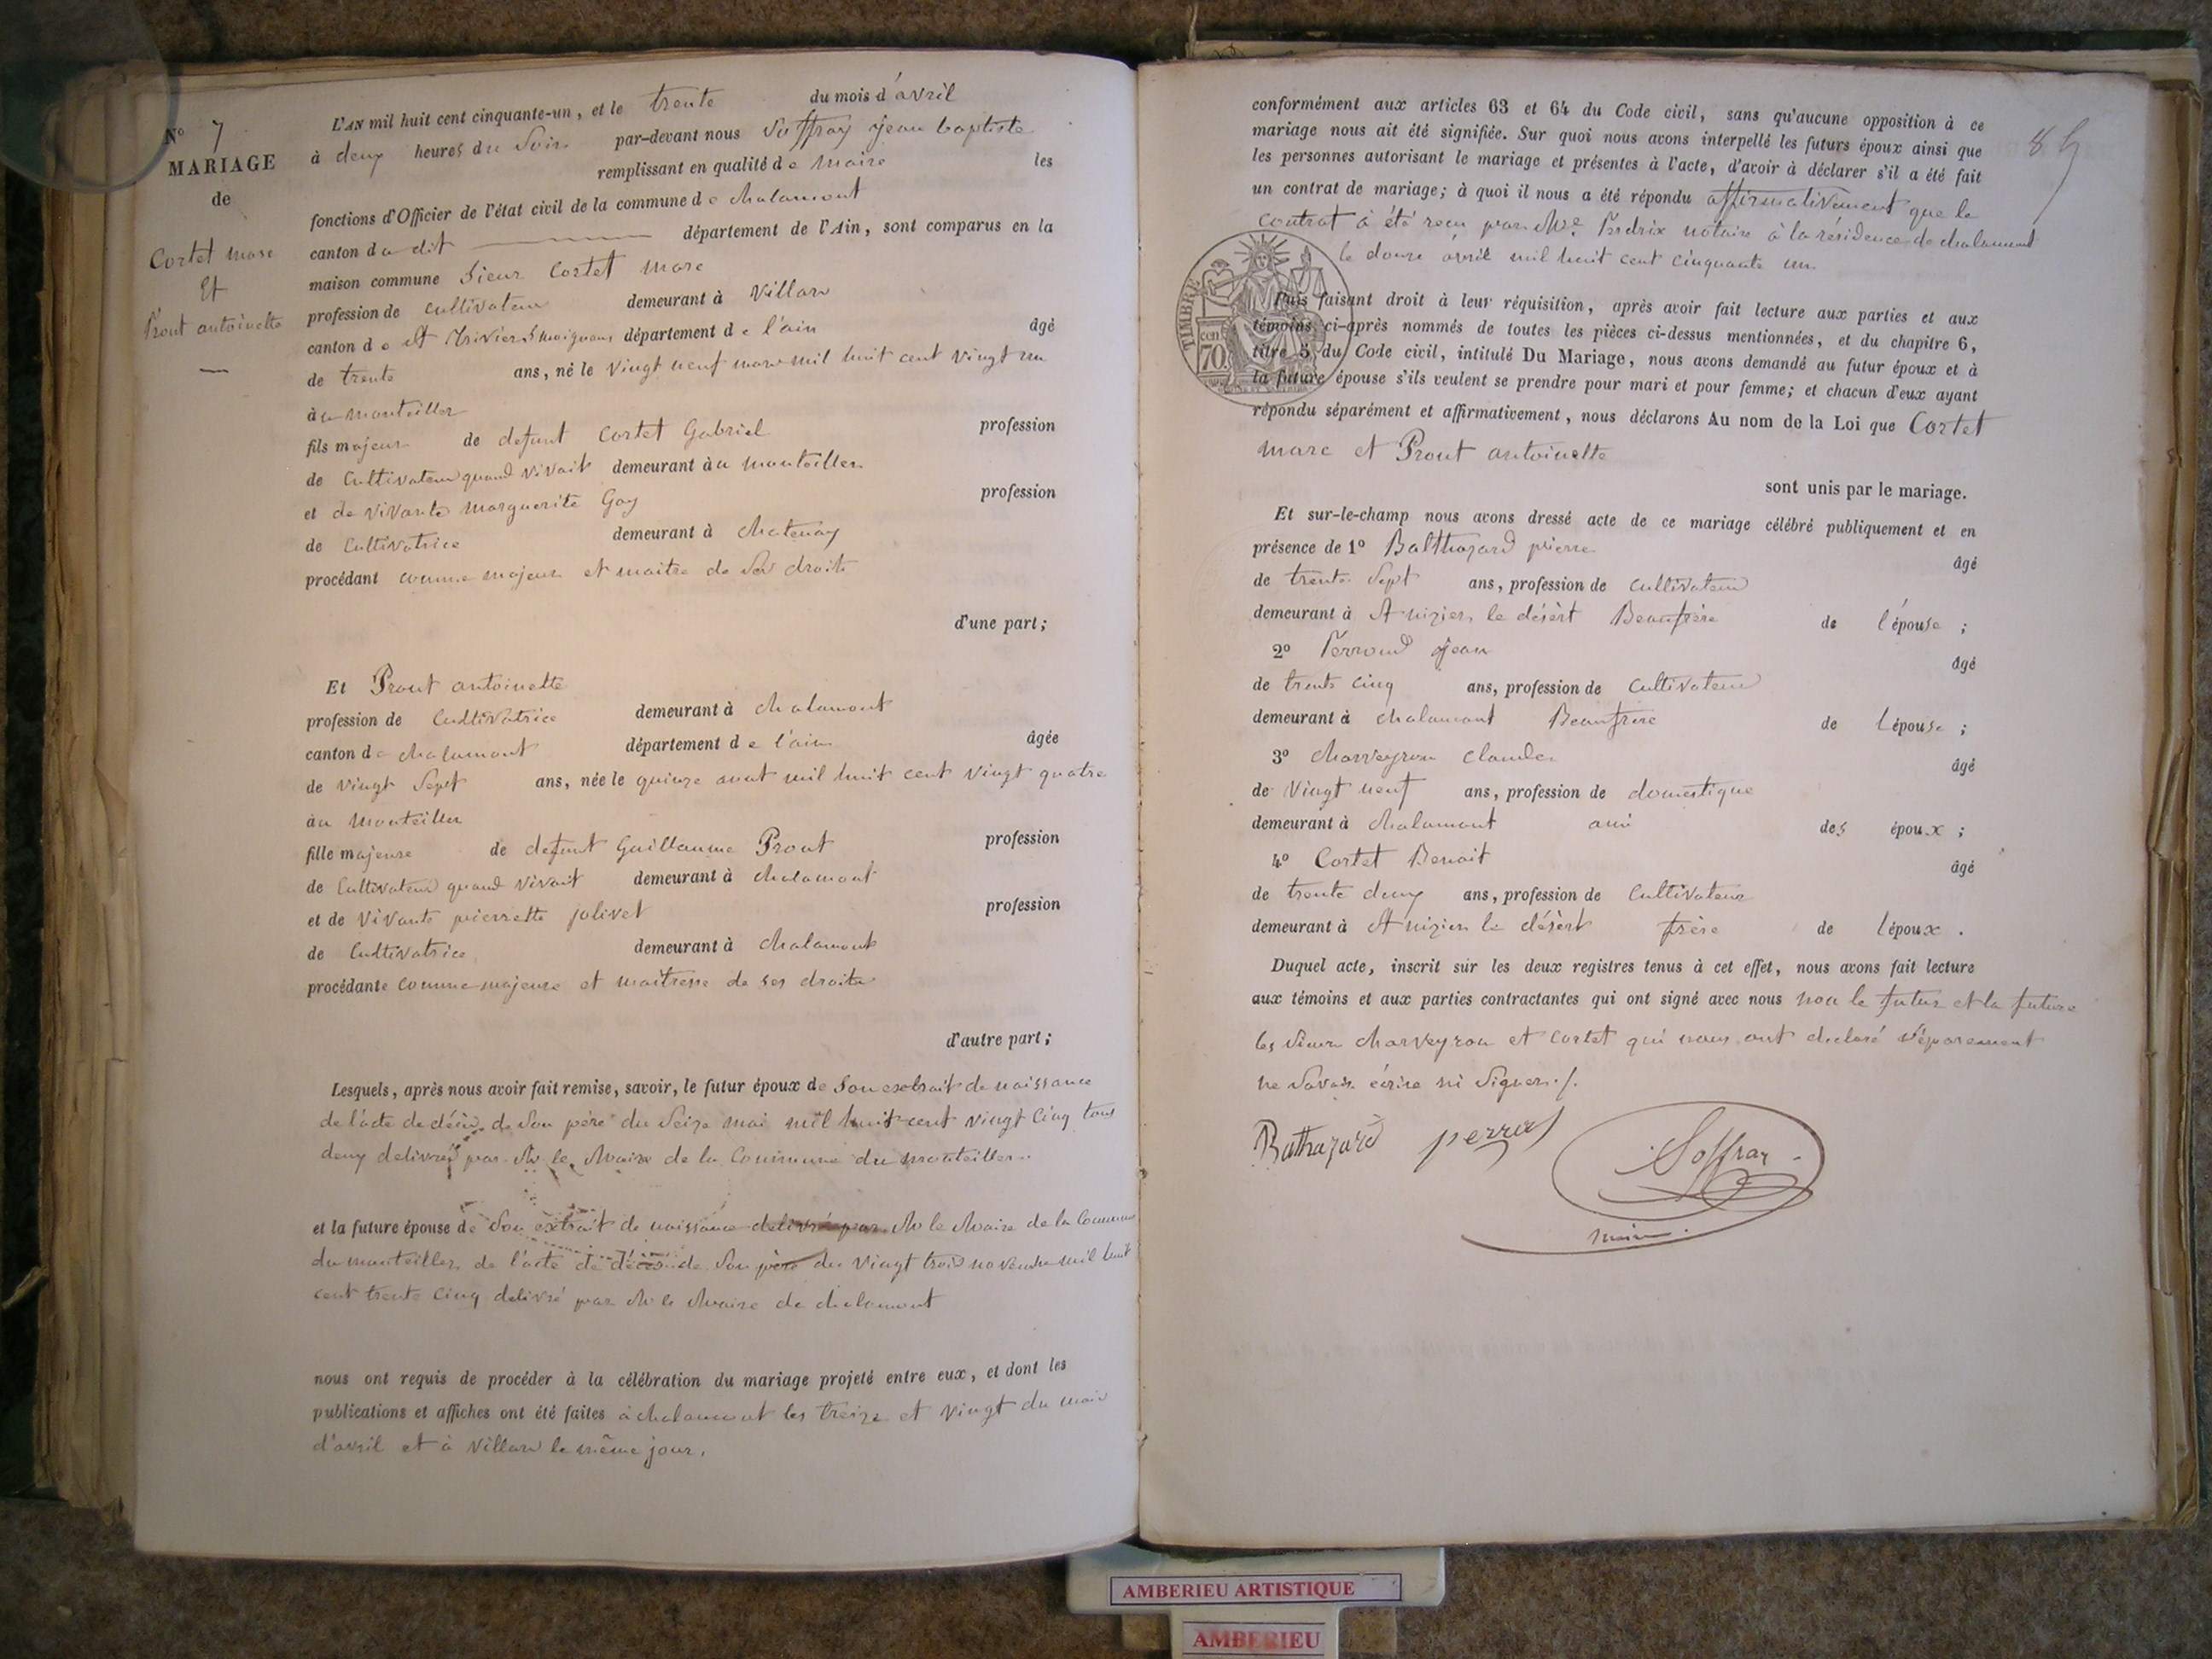 N° 7
MARIAGE
de
Cortet marc
Et
Prout antoinette
L'AN mil huit cent cinquante-un, et le trente du mois d'avril
à deux heures du Soir par-devant nous Soffray jean baptiste
remplissant en qualité de maire les
fonctions d'Officier de l'état civil de la commune de chalamont
canton du dit département de l'Ain, sont comparus en la
maison commune Sieur Cortet marc
profession de cultivateur demeurant à Villars
canton de St Trivier département de l'ain âgé
de trente ans, né le vingt neuf mars mil huit cent vingt un
au montellier
fils majeur de defunt Cortet Gabriel profession
de Cultivateur quand vivait demeurant au montellier
et de vivante marguerite Gay profession
de Cultivatrice demeurant à chatenay
procédant comme majeur et maitre de Ses droits
d'une part;
Et Prout antoinette
profession de Cultivatrice demeurant à chalamont
canton de chalamont département de l'ain âgée
de vingt Sept ans, née le quinze aout mil huit cent vingt quatre
au Monteiller
fille majeure de defunt Guillaume Prout profession
de Cultivateur quand vivait demeurant à chalamont
et de vivante pierrette jolivet profession
de Cultivatrice demeurant à chalamont
procédante comme majeure et maitresse de ses droits
d'autre part;
Lesquels, après nous avoir fait remise, savoir, le futur époux de Son extrait de naissance
de l'acte de décès de Son père du Seize mai mil huit cent vingt Cinq tous
deux delivrés par Mr le Maire de la Commune du monteiller
et la future épouse de Son extrait de naissance delivré par Mr le Maire de la Commune
du monteiller, de l'acte de décès de Son père du vingt trois novembre mil huit
cent trente Cinq delivré par Mr le Maire de chalamont
nous ont requis de procéder à la célébration du mariage projeté entre eux, et dont les
publications et affiches ont été faites à chalamont les treize et vingt du mois
d'avril et à Villars le même jour.
conformément aux articles 63 et 64 du Code civil, sans qu'aucune opposition à ce
mariage nous ait été signifiée. Sur quoi nous avons interpellé les futurs époux ainsi que
les personnes autorisant le mariage et présentes à l'acte, d'avoir à déclarer s'il a été fait
un contrat de mariage; à quoi il nous a été répondu affirmativement que le
contrat à été reçu par Me Perdrix notaire à la résidence de chalamont
le douze avril mil huit cent cinquante un
TIMBRE
cen
70.
Puis faisant droit à leur réquisition, après avoir fait lecture aux parties et aux
témoins ci-après nommés de toutes les pièces ci-dessus mentionnées, et du chapitre 6,
titre 5 du Code civil, intitulé Du Mariage, nous avons demandé au futur époux et à
la future épouse s'ils veulent se prendre pour mari et pour femme; et chacun d'eux ayant
répondu séparément et affirmativement, nous déclarons Au nom de la Loi que Cortet
marc et Prout antoinette
sont unis par le mariage.
Et sur-le-champ nous avons dressé acte de ce mariage célébré publiquement et en
présence de 1° Balthazard pierre âgé
de trente Sept ans, profession de cultivateur
demeurant à St nizier le désert Beaufrère de l'épouse ;
2° Perroud jean âgé
de trente cinq ans, profession de Cultivateur
demeurant à chalamont Beaufrère de lépouse ;
3° charveyron claude âgé
de vingt neuf ans, profession de domestique
demeurant à chalamont ami des époux ;
4° Cortet Benoit âgé
de trente deux ans, profession de Cultivateur
demeurant à St nizier le désert frère de lépoux .
Duquel acte, inscrit sur les deux registres tenus à cet effet, nous avons fait lecture
aux témoins et aux parties contractantes qui ont signé avec nous non le futur et la future
les Sieurs charveyron et cortet qui nous ont declaré Séparement
ne Savoir écrire ni Signer ./.
Balthazard perroud Soffray
maire
AMBERIEU ARTISTIQUE
AMBERIEU